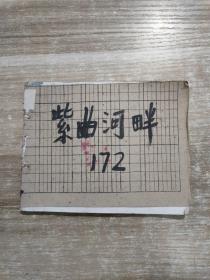 紫曲河畔
172